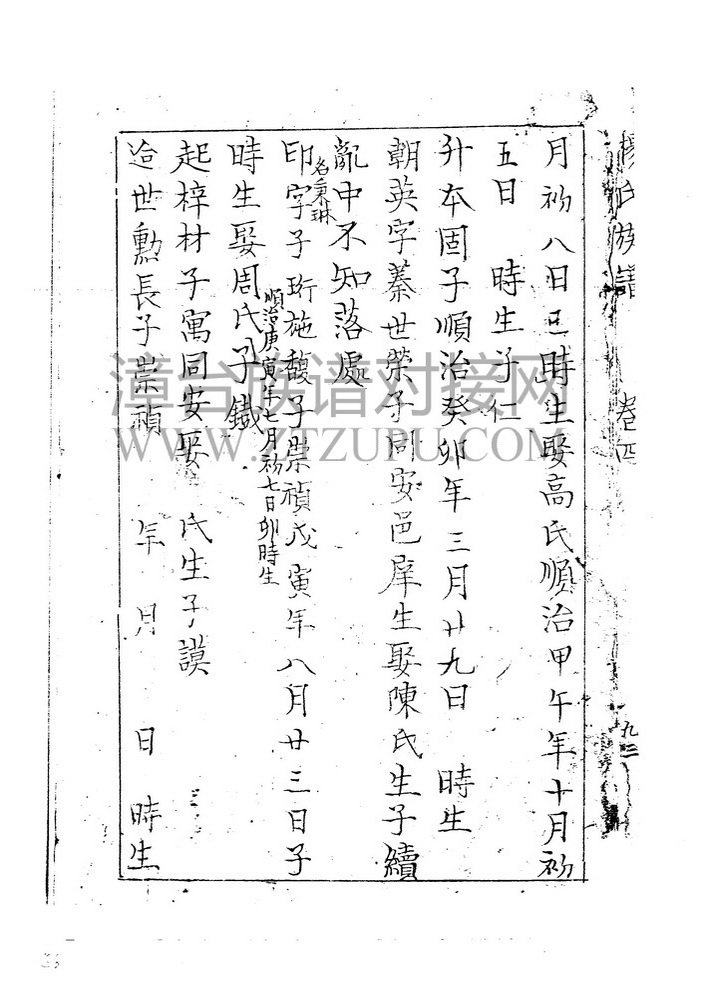 楊氏族譜 卷四 九三
月初八日巳時生娶高氏順治甲午年十月初
五日 時生子仁
升本固子順治癸卯年三月廿九日 時生
朝英字蓁世榮子同安邑庠生娶陳氏生子續
亂中不知落處
印字子珩施馥子崇禎戊寅年八月廿三日子
名秉琳
時生娶周氏子鐵
順治庚寅年七月初七日卯時生
起梓材子寓同安娶 氏生子謨
迨世勳長子崇禎 年 月 日 時生
漳台族谱对接网
WWW.ZTZUPU.COM